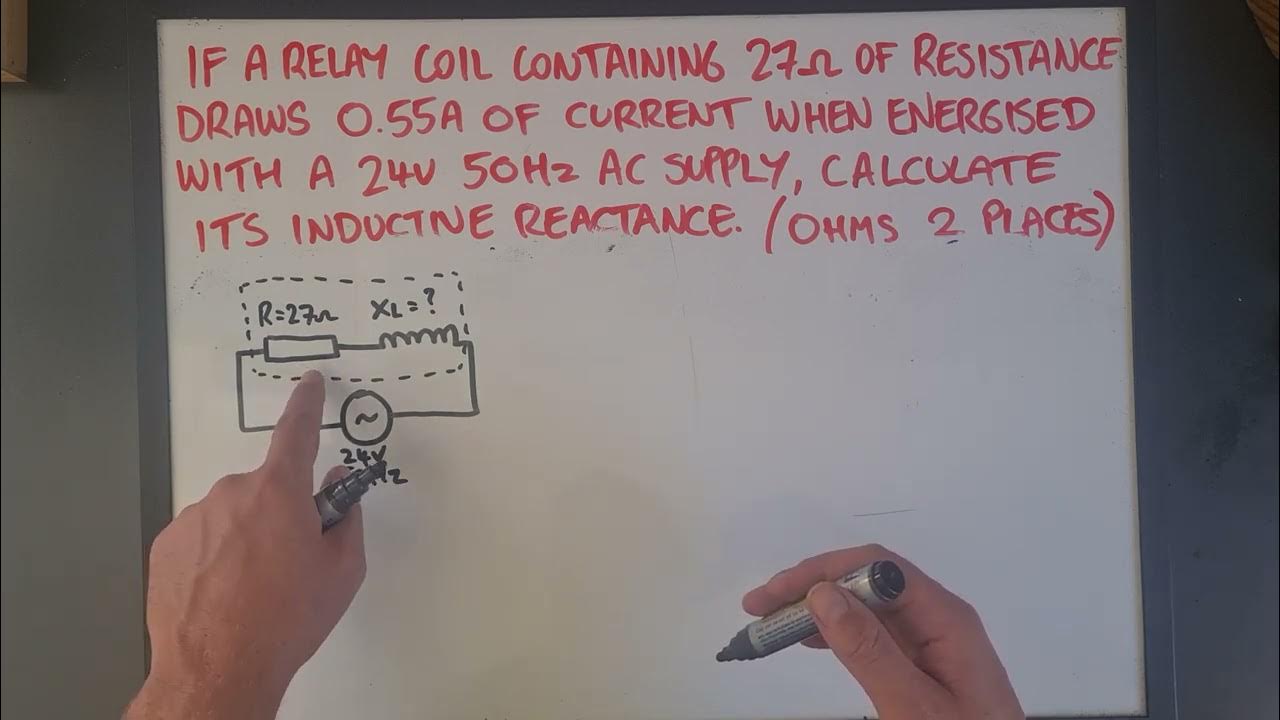 IF A RELAY COIL CONTAINING 27Ω OF RESISTANCE
DRAWS 0.55A OF CURRENT WHEN ENERGISED
WITH A 24V 50Hz AC SUPPLY, CALCULATE
ITS INDUCTIVE REACTANCE. (OHMS 2 PLACES)
R=27Ω XL=?
~
24V